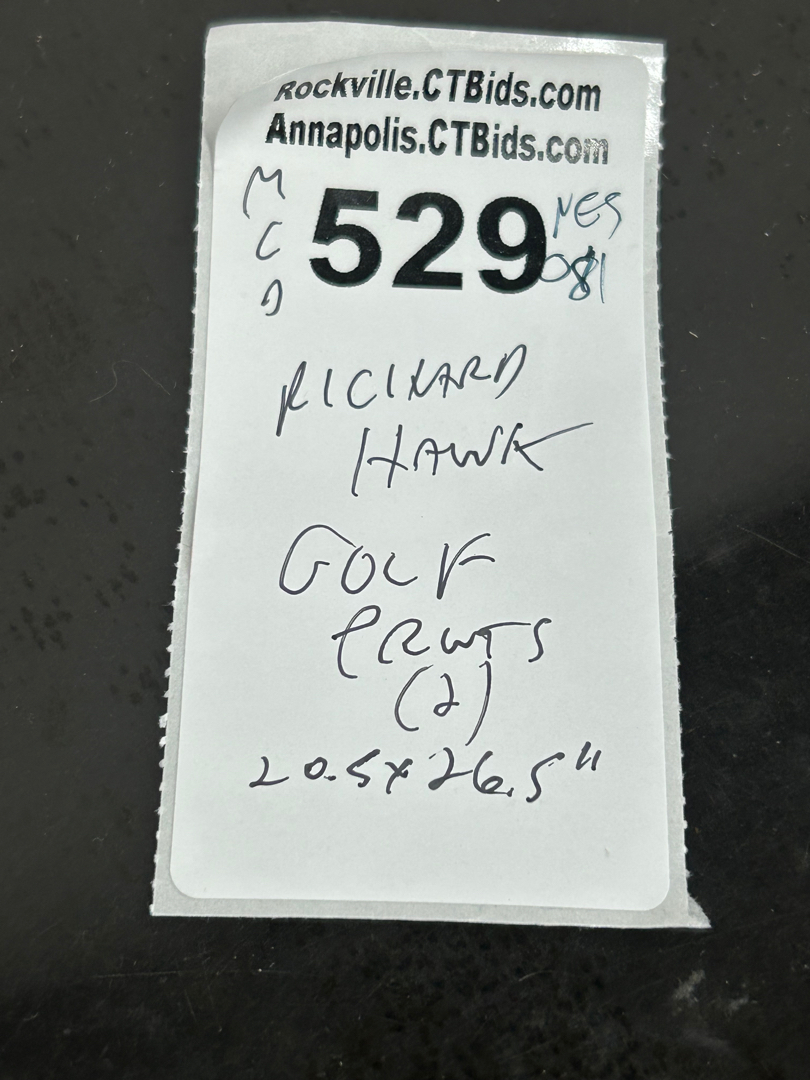 Rockville.CTBids.com
Annapolis.CTBids.com
MCD
529
NES
081
RICHARD
HAWK
GOLF
PRINTS
(2)
20.5x26.5"